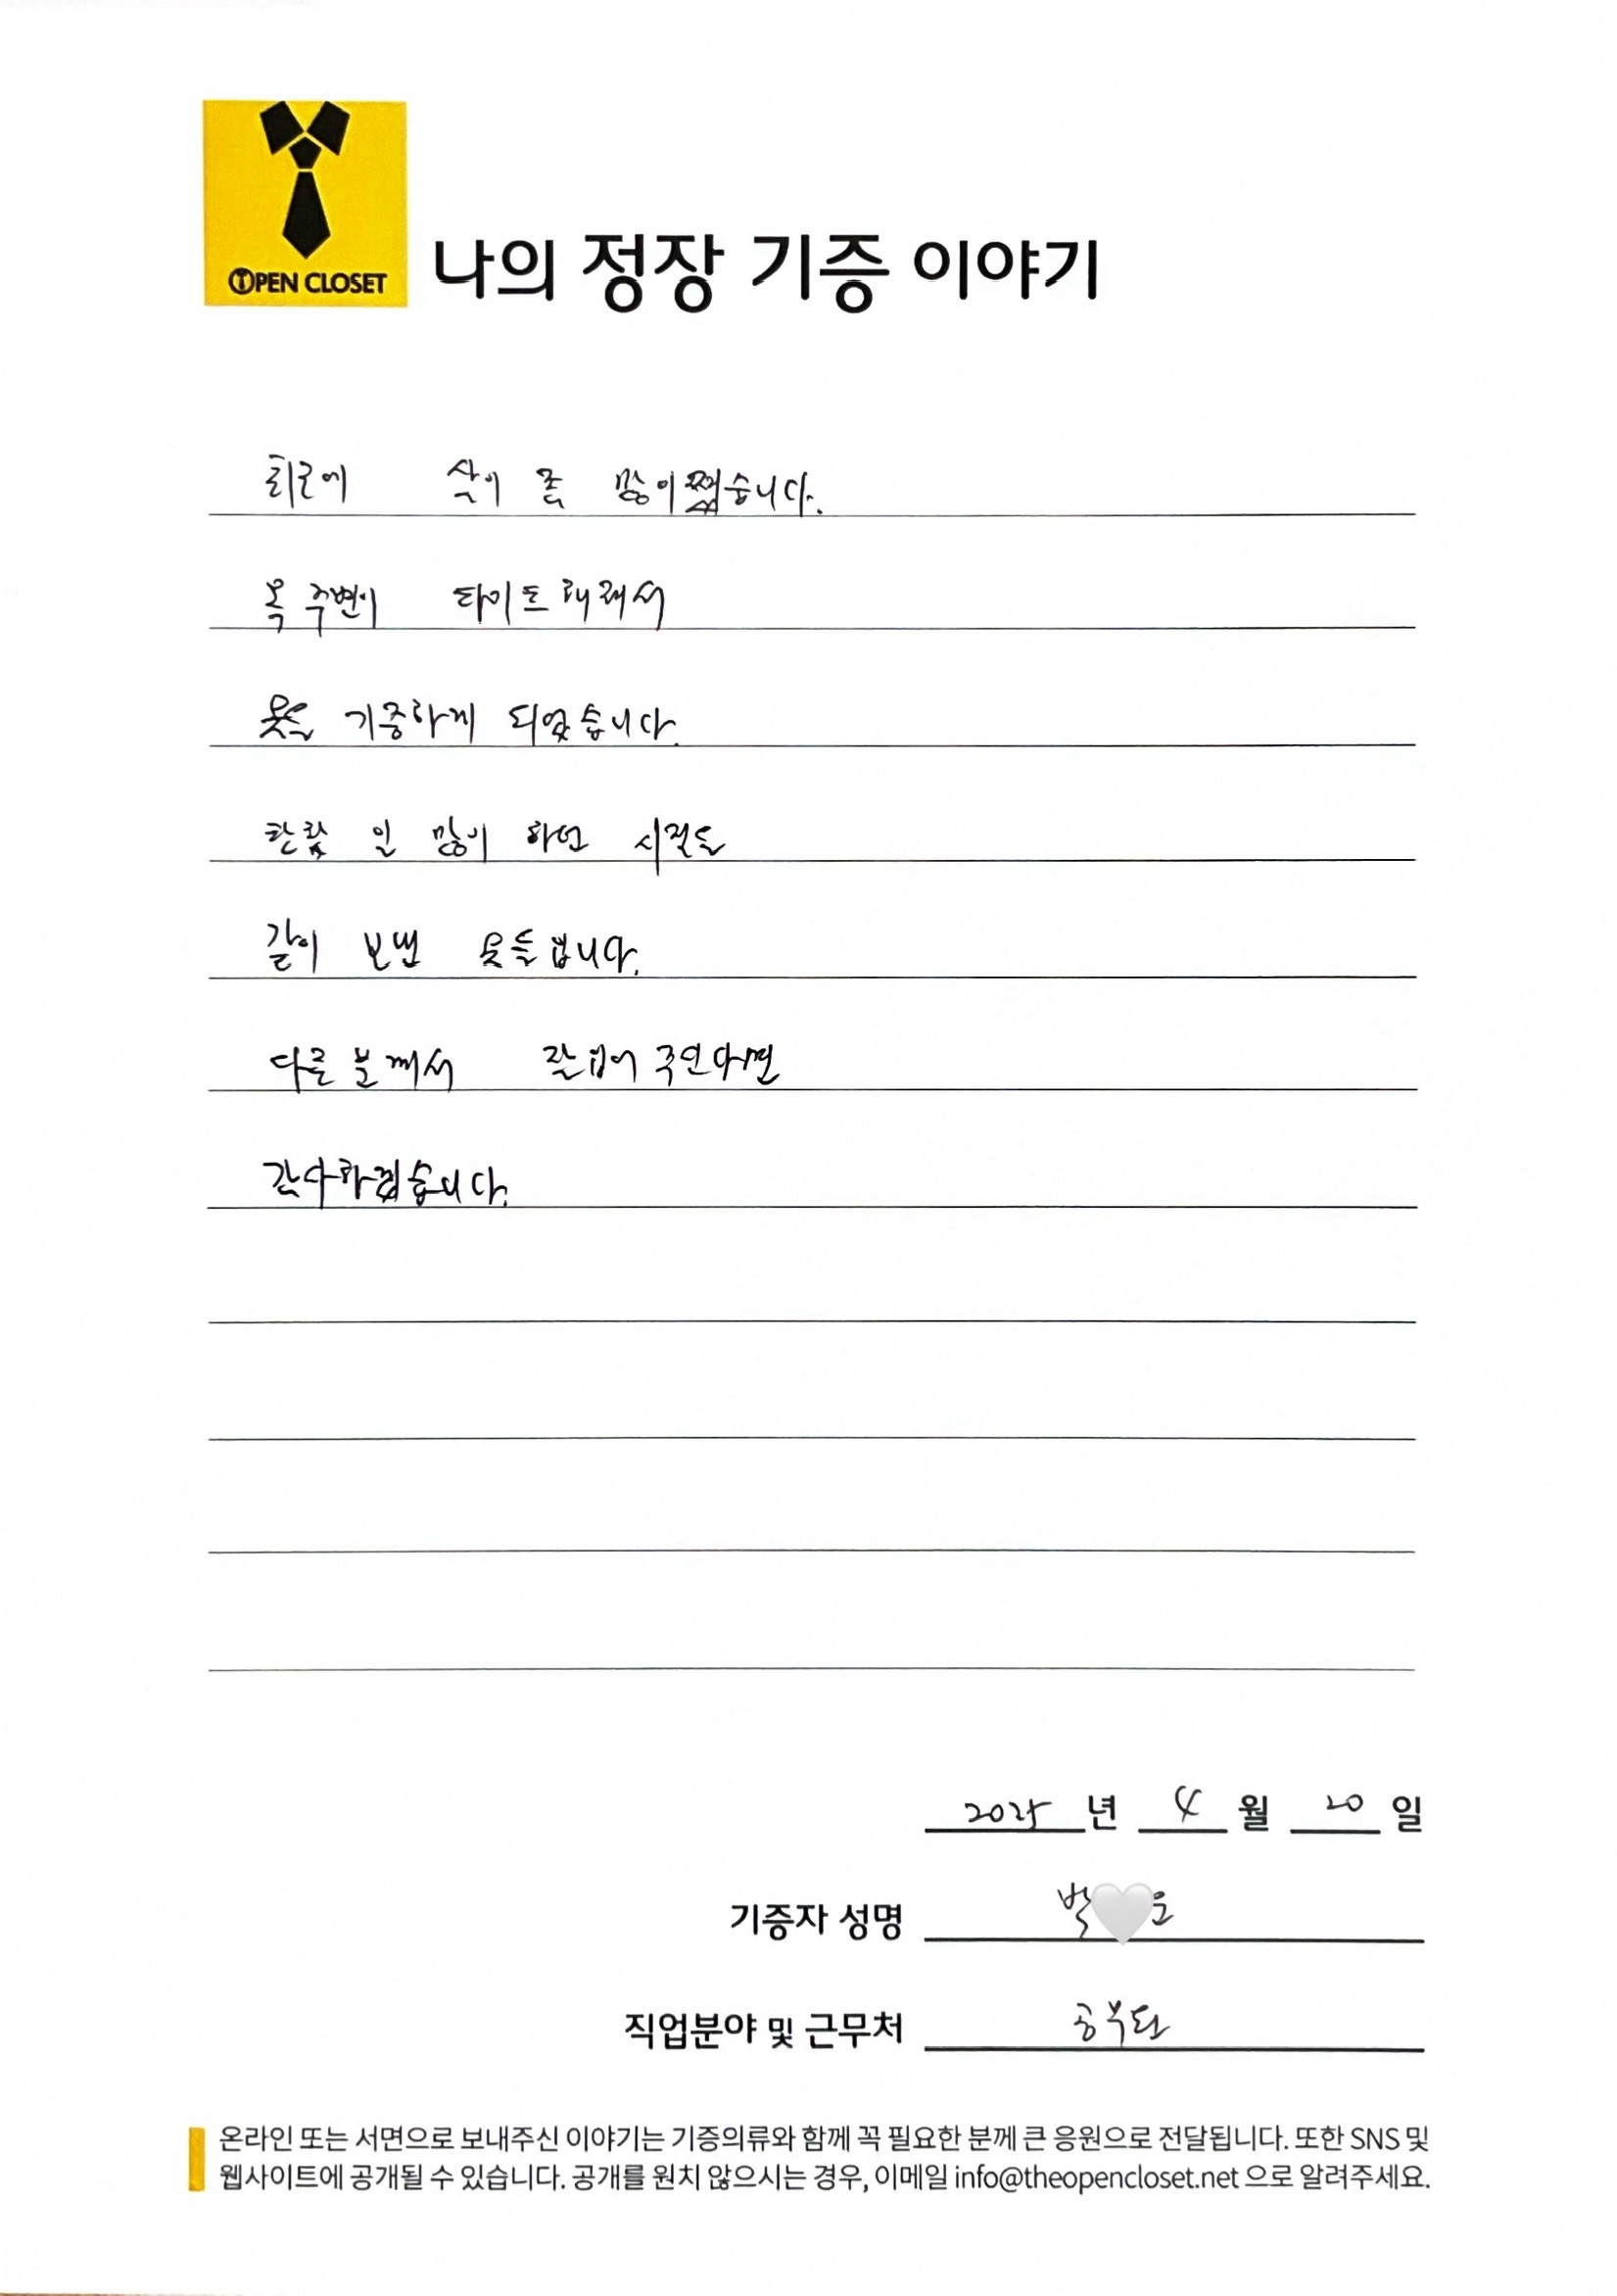 OPEN CLOSET
나의 정장 기증 이야기
최근에 살이 좀 많이 쪘습니다.
목 주변이 타이트해져서
옷을 기증하게 되었습니다.
한참 일 많이 하던 시절을
같이 보낸 옷들입니다.
다른 분께서 잘 입어 주신다면
감사하겠습니다.
2025 년 4 월 20 일
기증자 성명 박 운
직업분야 및 근무처 공무원
온라인 또는 서면으로 보내주신 이야기는 기증의류와 함께 꼭 필요한 분께 큰 응원으로 전달됩니다. 또한 SNS 및
웹사이트에 공개될 수 있습니다. 공개를 원치 않으시는 경우, 이메일 info@theopencloset.net 으로 알려주세요.